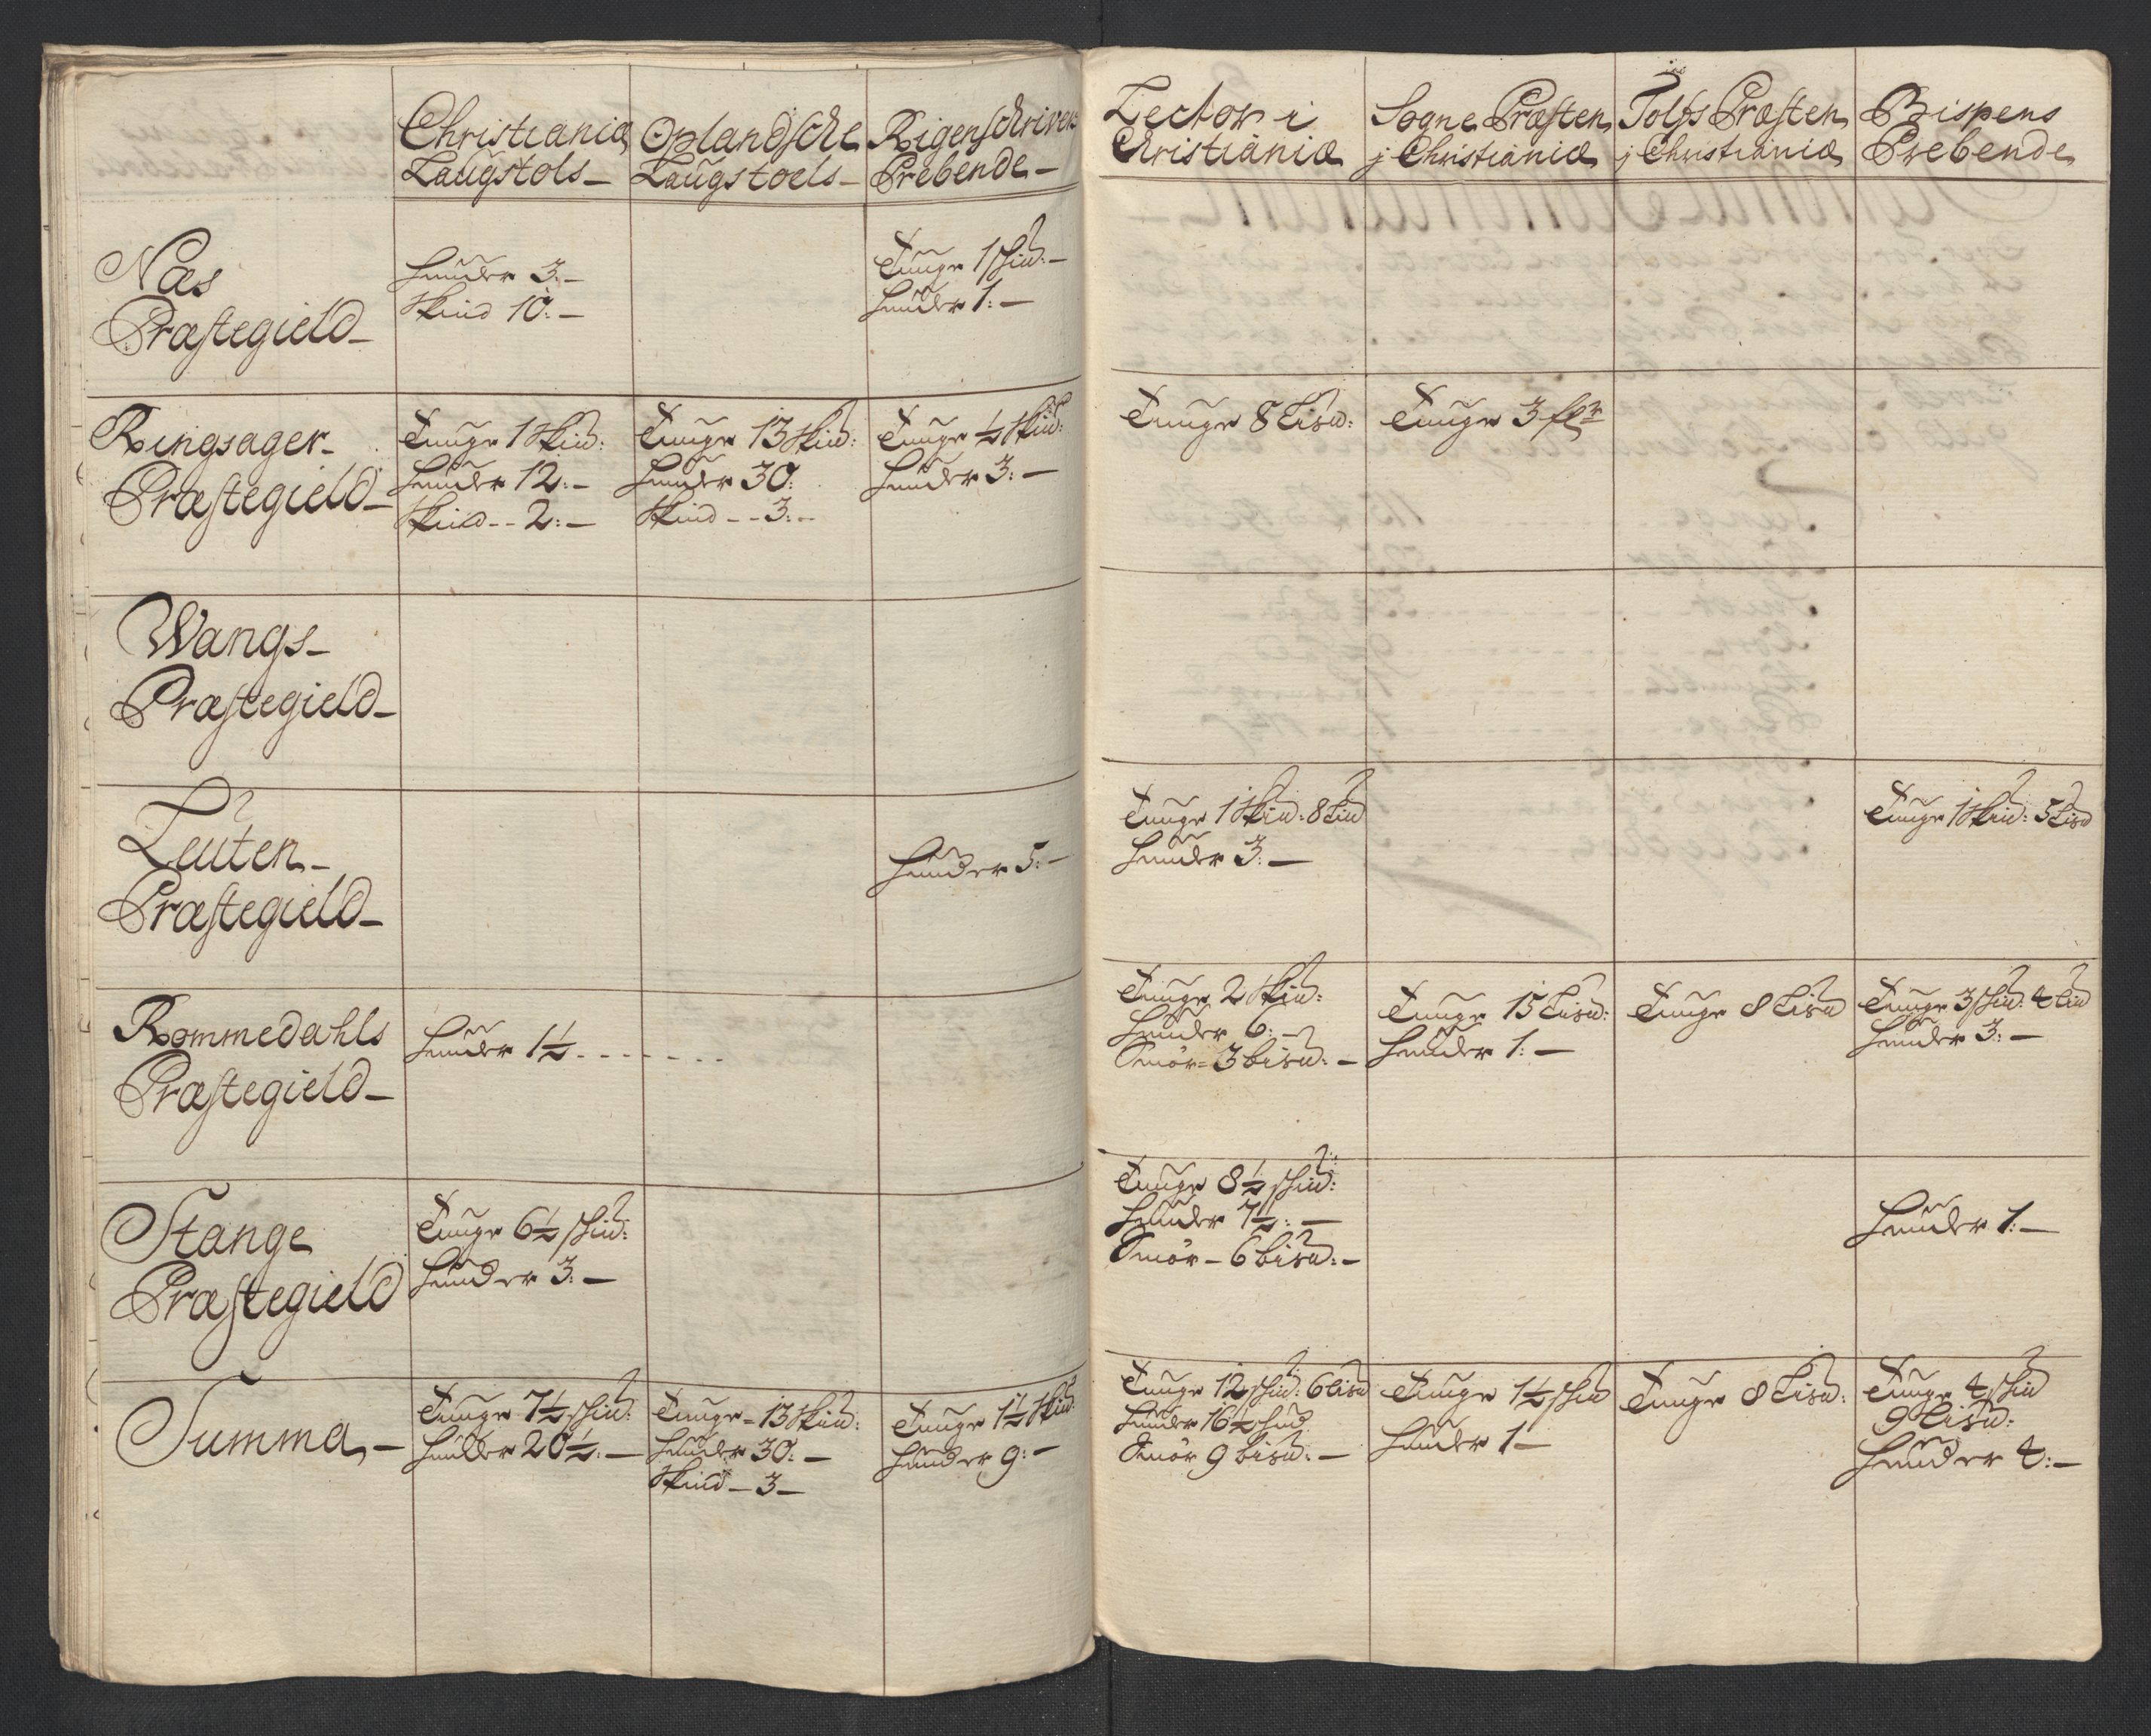 Christianiæ
Laugstols
Oplandsche
Laugstoels
Rigenschriver
Prebende
Lector i
Christianiæ
Sogne Præsten
j Christianiæ
Tolfs Præsten
j Christianiæ
Bispens
Prebende
Næs
Præstegield
Huuder 3:
Skind 10:
Tunge 1 skud:
Huuder 1:
Ringsager
Præstegield
Tunge 1 Skud:
Huuder 12:
Skind 2:
Tunge 13 Skud:
Huuder 30:
Skind 3:
Tunge ½ Skud:
Huuder 3:
Tunge 8 Lisd:
Tunge 3 fdr
Wangs
Præstegield
Leuten
Præstegield
Huuder 5:
Tunge 1 Skud: 8 Lisd
Huuder 3:
Tunge 1 Skud: 5 Lisd
Rommedahls
Præstegield
Huuder 1½
Tunge 2 Skud:
Huuder 6:
Smør 3 bisd:
Tunge 15 Lisd:
Huuder 1:
Tunge 8 Lisd
Tunge 3 skud: 4 Lisd
Huuder 3:
Stange
Præstegield
Tunge 6½ skud:
Huuder 3:
Tunge 8½ skud:
Huuder 7½:
Smør 6 bisd:
Huuder 1:
Summa
Tunge 7½ skud:
Huuder 20½:
Tunge 13 Skud:
Huuder 30:
Skind 3
Tunge 1½ Skud:
Huuder 9:
Tunge 12 skud: 6 Lisd
Huuder 16½
Smør 9 bisd:
Tunge 1½ skud
Huuder 1
Tunge 8 Lisd:
Tunge 4 skud
9 Lisd:
Huuder 4: